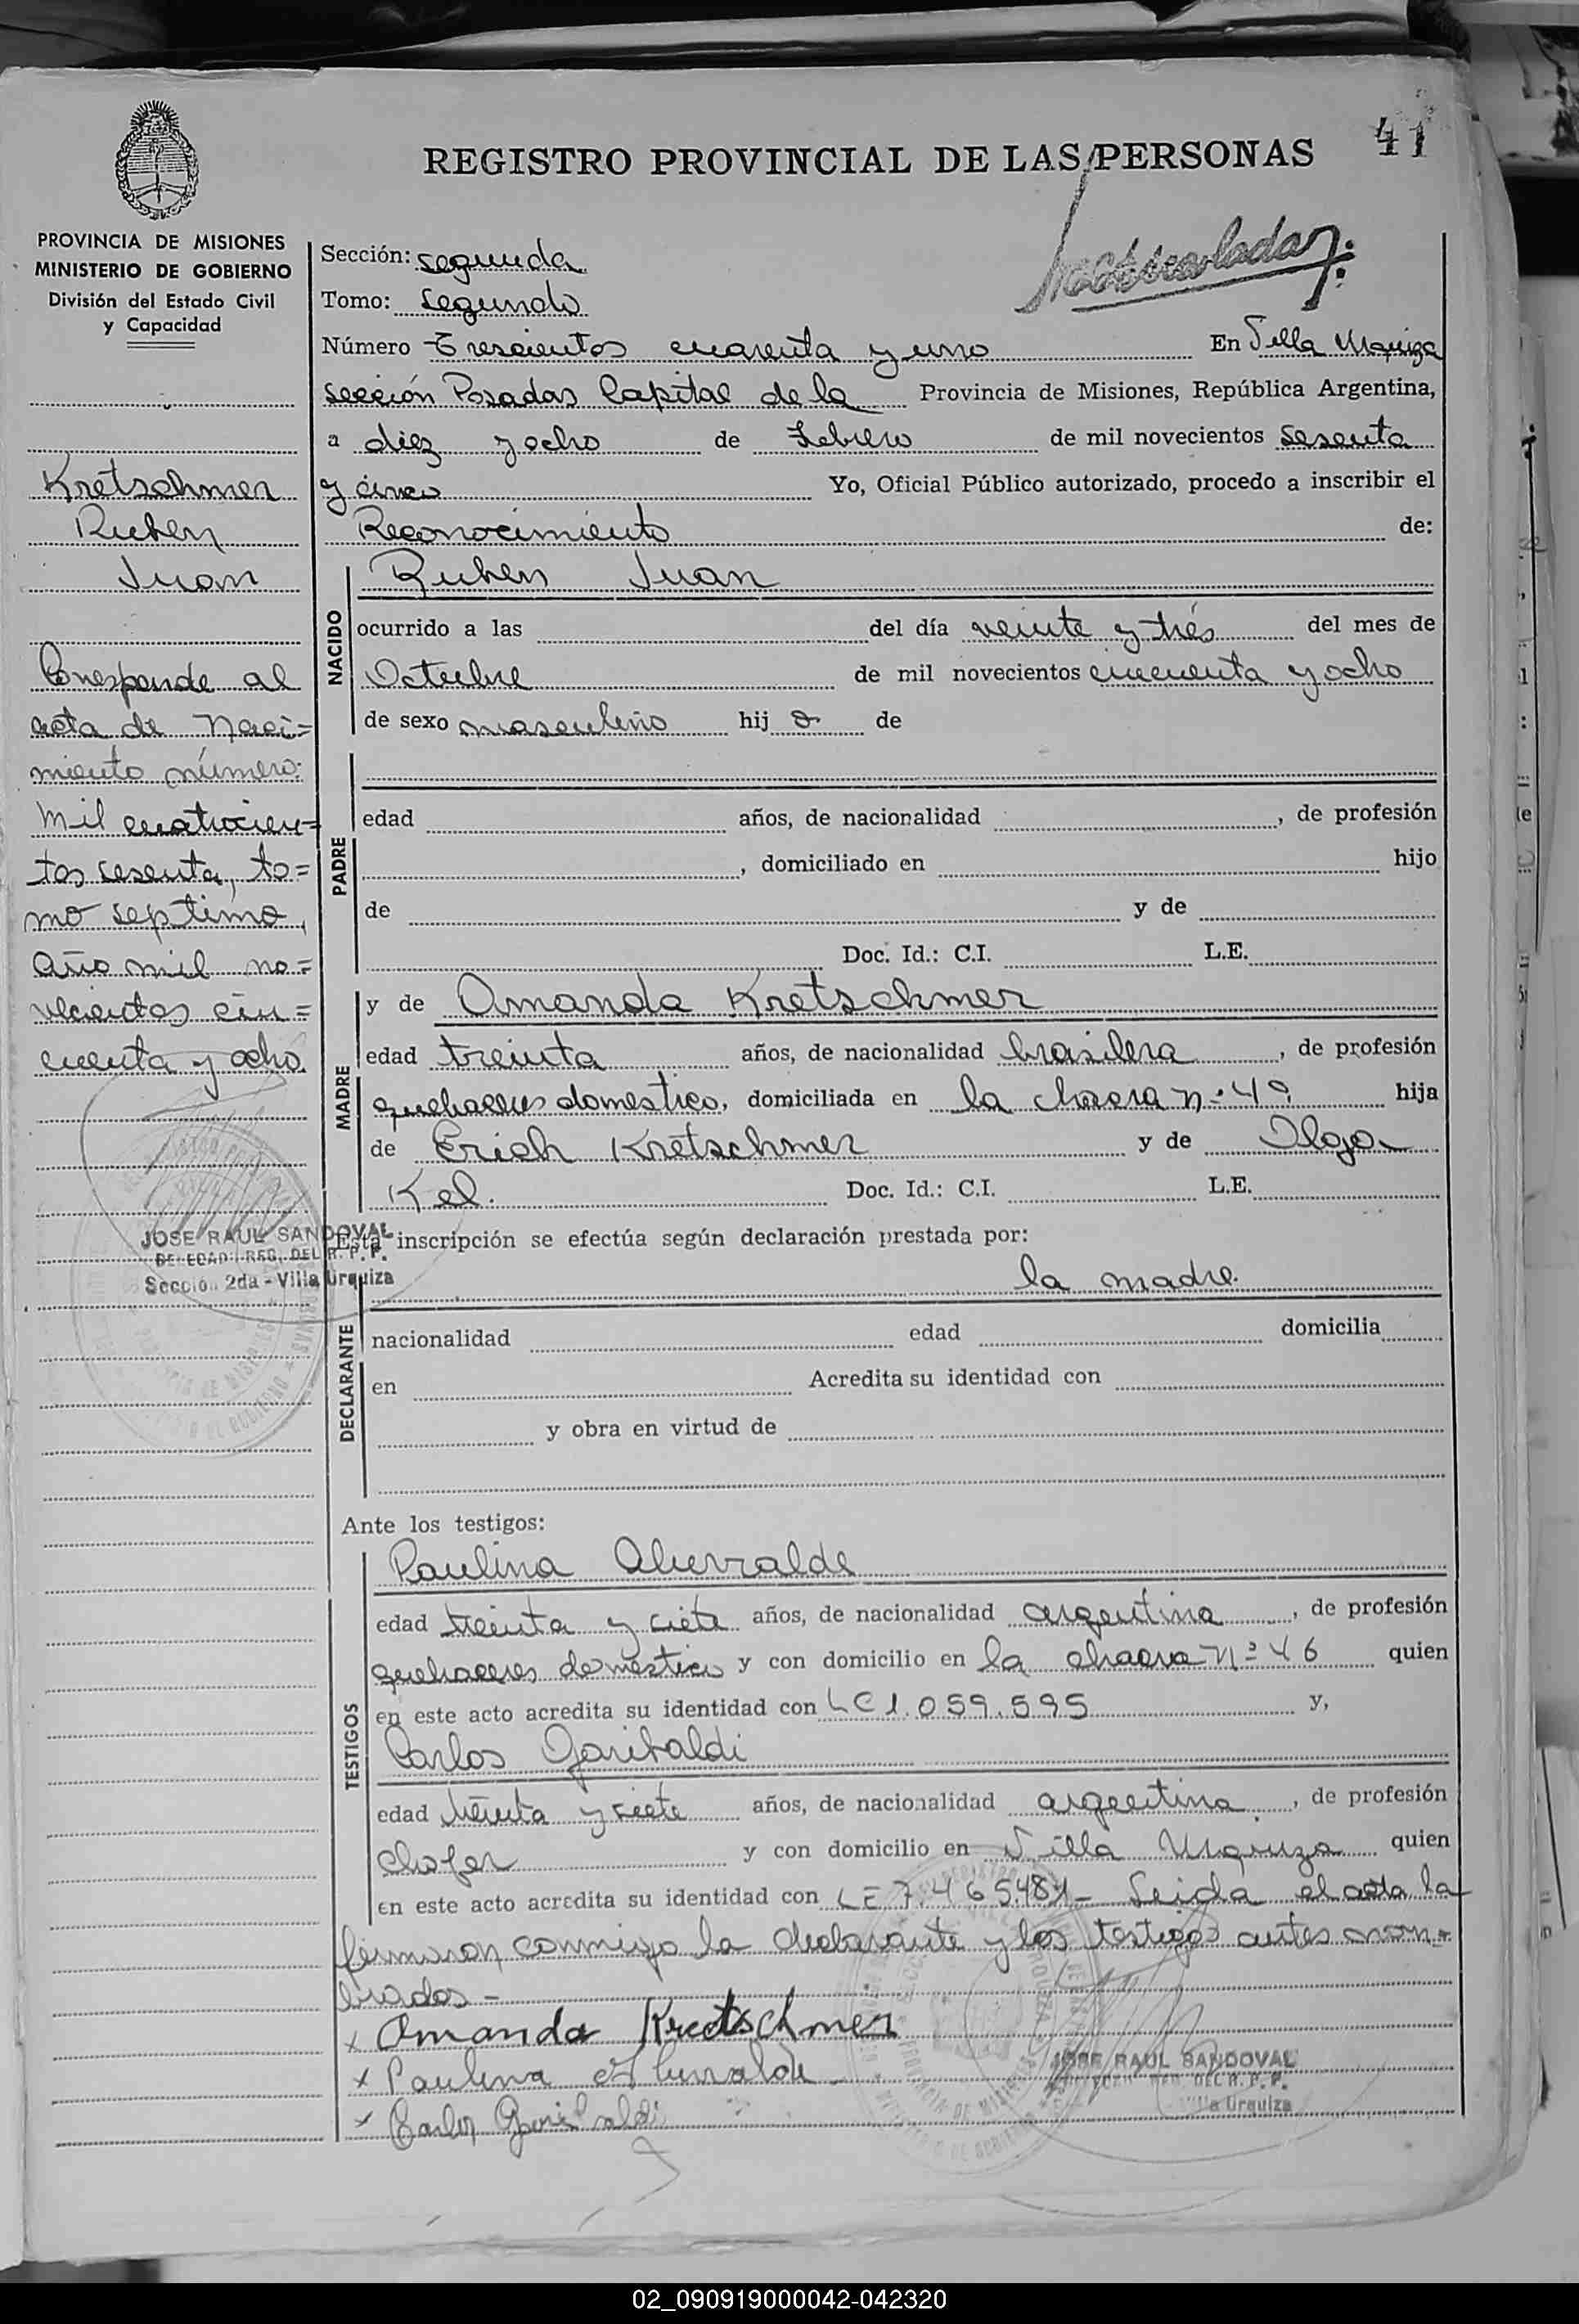 41
REGISTRO PROVINCIAL DE LAS PERSONAS
PROVINCIA DE MISIONES
MINISTERIO DE GOBIERNO
División del Estado Civil
y Capacidad
Kretschmer
Ruben
Juan
Corresponde al
acta de Naci=
miento número:
mil cuatrocien=
tos sesenta, to=
mo septimo,
año mil no=
vecientos cin=
cuenta y ocho.
JOSE RAUL SANDOVAL
DELEGADO REG. DEL R. P. P.
Sección 2da - Villa Urquiza
Sección: segunda
Tomo: segundo
Número Trescientos cuarenta y uno En Villa Urquiza
sección Posadas Capital de la Provincia de Misiones, República Argentina,
a diez y ocho de Febrero de mil novecientos sesenta
y cinco Yo, Oficial Público autorizado, procedo a inscribir el
Reconocimiento de:
NACIDO
Ruben Juan
ocurrido a las del día veinte y trés del mes de
Octubre de mil novecientos cincuenta y ocho
de sexo masculino hij o de
PADRE
edad años, de nacionalidad , de profesión
, domiciliado en hijo
de y de
Doc. Id.: C.I. L.E.
MADRE
y de Amanda Kretschmer
edad treinta años, de nacionalidad brasilera , de profesión
quehaceres domestico, domiciliada en la chacra n° 49 hija
de Erich Kretschmer y de Olga
Kel. Doc. Id.: C.I. L.E.
Esta inscripción se efectúa según declaración prestada por:
DECLARANTE
la madre.
nacionalidad edad domicilia
en Acredita su identidad con
y obra en virtud de
Ante los testigos:
TESTIGOS
Paulina Alurralde
edad treinta y ciete años, de nacionalidad argentina , de profesión
quehaceres domestico y con domicilio en la chacra n° 46 quien
en este acto acredita su identidad con LC 1.059.595 y,
Carlos Garibaldi
edad treinta y ciete años, de nacionalidad argentina , de profesión
chofer y con domicilio en Villa Urquiza quien
en este acto acredita su identidad con LE 7.465.481- Leida el acta la
firmaron conmigo la declarante y los testigos antes nom=
brados -
x Amanda Kretschmer
x Paulina Alurralde
x Carlos Garibaldi
JOSE RAUL SANDOVAL
Villa Urquiza
02_090919000042-042320